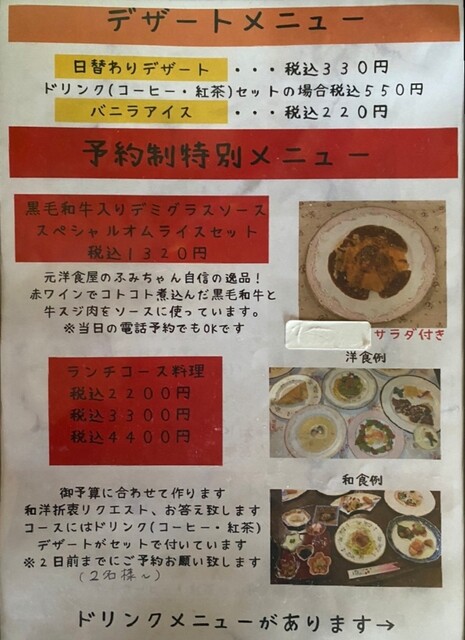 デザートメニュー
日替わりデザート ・・・税込330円
ドリンク(コーヒー・紅茶)セットの場合税込550円
バニラアイス ・・・税込220円
予約制特別メニュー
黒毛和牛入りデミグラスソース
スペシャルオムライスセット
税込1320円
元洋食屋のふみちゃん自信の逸品!
赤ワインでコトコト煮込んだ黒毛和牛と
牛スジ肉をソースに使っています。
※当日の電話予約でもOKです
サラダ付き
ランチコース料理
税込2200円
税込3300円
税込4400円
洋食例
和食例
御予算に合わせて作ります
和洋折衷リクエスト、お答え致します
コースにはドリンク(コーヒー・紅茶)
デザートがセットで付いています
※2日前までにご予約お願い致します
(2名様~)
ドリンクメニューがあります→